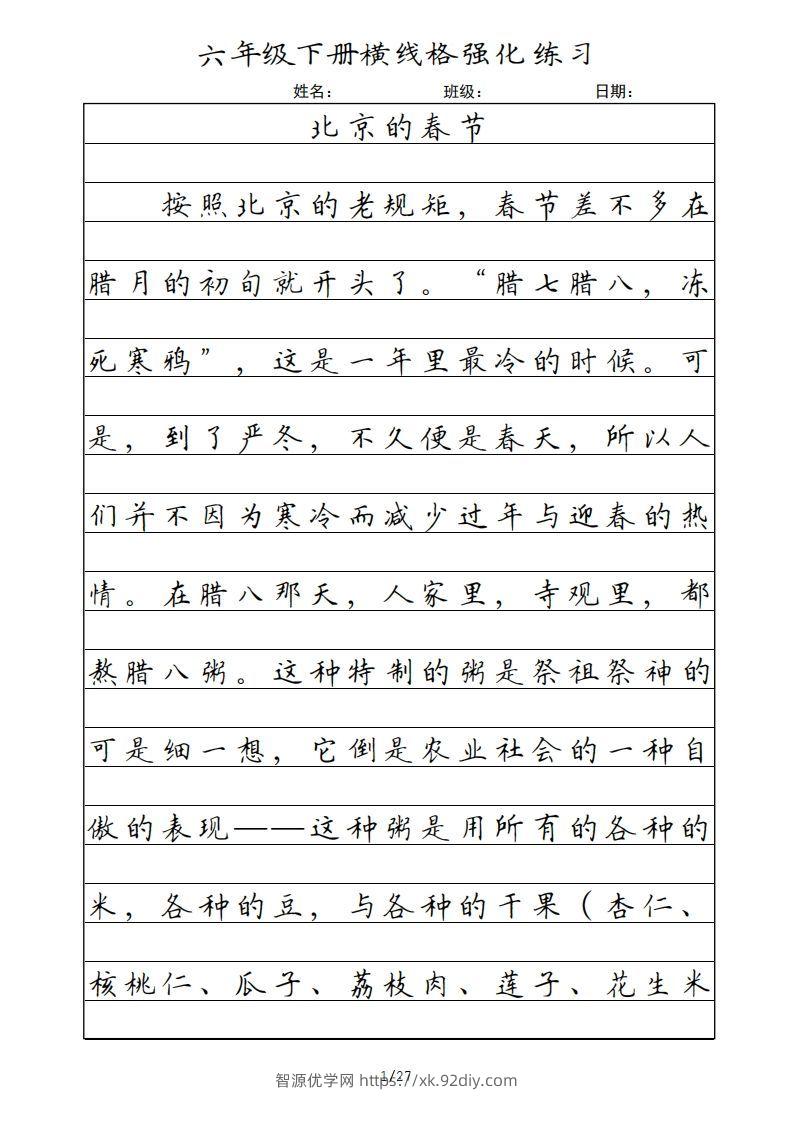 六年级下册横线格强化练习
姓名： 班级： 日期：
北京的春节
按照北京的老规矩，春节差不多在
腊月的初旬就开头了。“腊七腊八，冻
死寒鸦”，这是一年里最冷的时候。可
是，到了严冬，不久便是春天，所以人
们并不因为寒冷而减少过年与迎春的热
情。在腊八那天，人家里，寺观里，都
熬腊八粥。这种特制的粥是祭祖祭神的
可是细一想，它倒是农业社会的一种自
傲的表现——这种粥是用所有的各种的
米，各种的豆，与各种的干果（杏仁、
核桃仁、瓜子、荔枝肉、莲子、花生米
1/27
智源优学网 https://xk.92diy.com